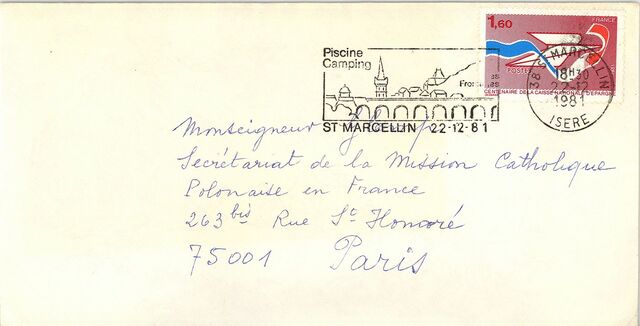 1,60
FRANCE
POSTES
CENTENAIRE DE LA CAISSE NATIONALE D'EPARGNE
Piscine
Camping
ST MARCELLIN 22-12-81
38 ST MARCELLIN
18H30
22-12
1981
ISERE
Monseigneur
Secrétariat de la Mission Catholique
Polonaise en France
263 bis Rue St Honoré
75001 Paris